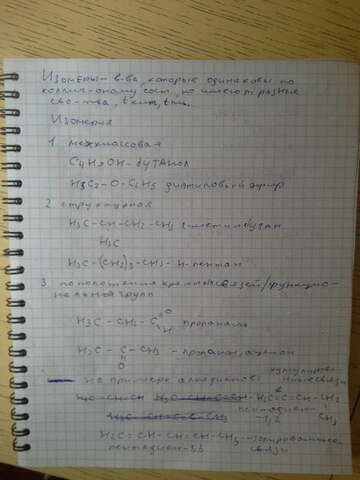 Изомеры - в-ва, которые одинаковы по
колич-ному сост., но имеют разные
свой-тва, tкип, tпл.
Изомерия
1. межклассовая
C4H9OH - бутанол
H5C2-O-C2H5 диэтиловый эфир
2. структурная
H3C-CH-CH2-CH3 2-метилбутан
H3C
H3C-(CH2)3-CH3 - н-пентан
3. по положению кратных связей/функцио-
нальной групп
H3C-CH2-C O H пропаналь
H3C-C-CH3 - пропанон, ацетон
O
на примере алкадиенов:
H2C=C=CH-CH2
пентадиен
-1,2
CH3
H2C=CH-CH=CH-CH3 -
пентадиен-1,3 связи